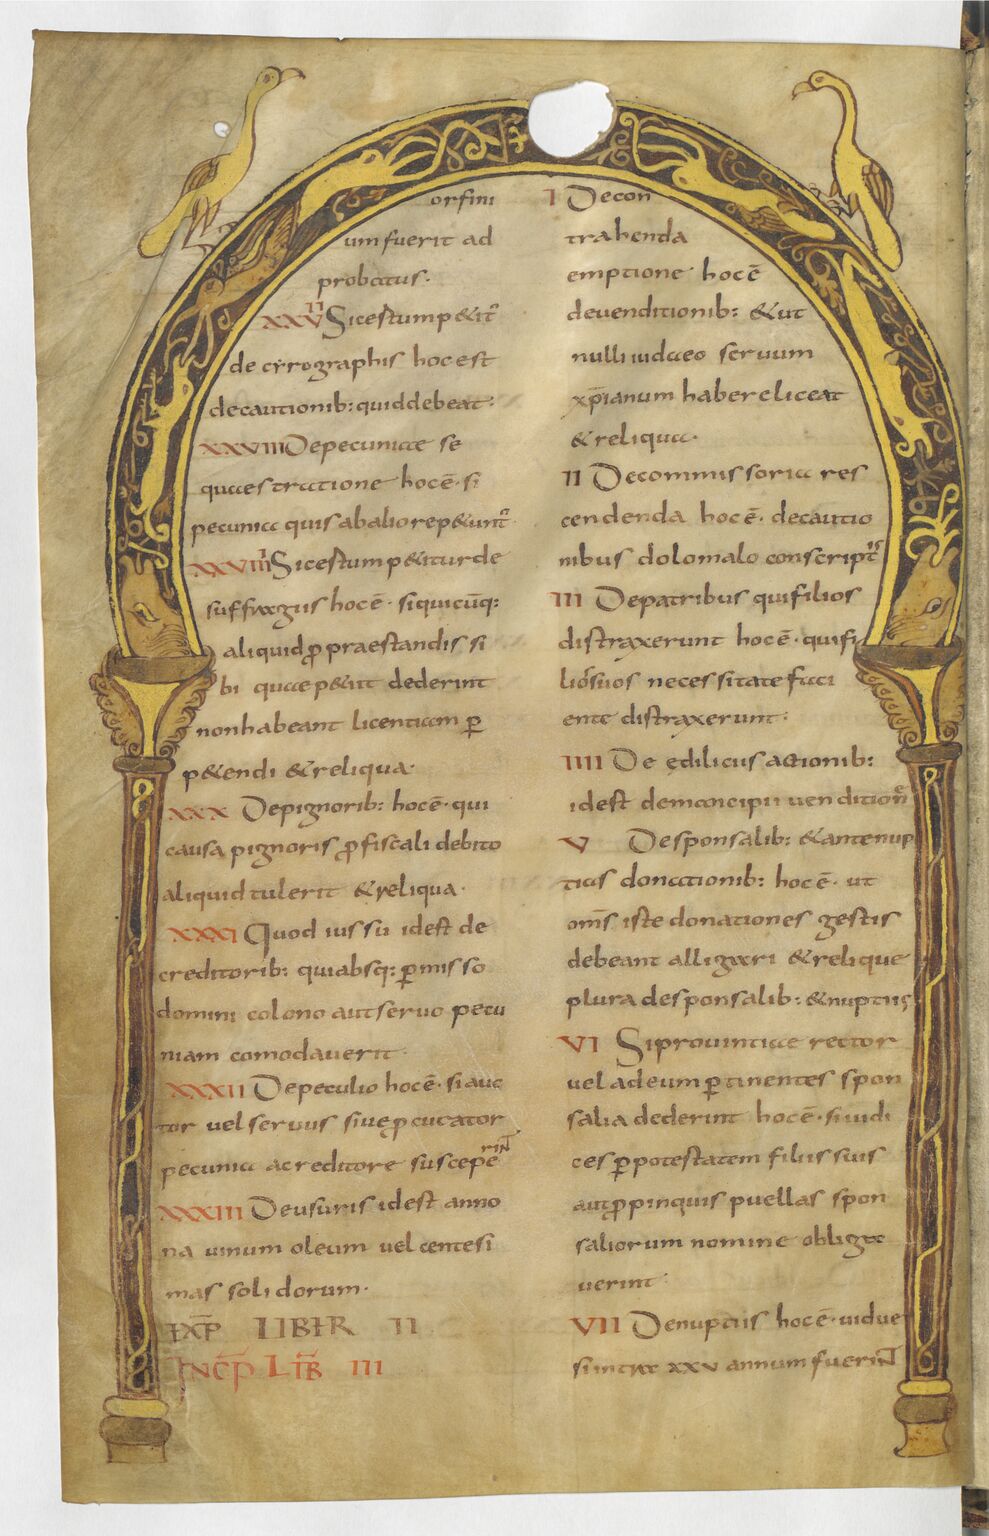 orfini
um fuerit ad
probatus.
XXVII Si cestum p&it᷑
de cyrographis hoc est
de cautionib: quid debeat.
XXVIII De pecuniae se
quaestratione hocē. si
pecunia quis ab alio rep&unt᷑
XXVIIII Si cestum p&itur de
suffragiis hocē. si quicūq:
aliquid ꝓ praestandis si
bi quae p&iit dederint
non habeant licentiam ꝑ
p&endi & reliqua.
XXX De pignorib: hocē. qui
causa pignoris ꝓ fiscali debito
aliquid tulerit & reliqua.
XXXI Quod iussu id est de
creditorib: qui absq: ꝑmisso
domini colono aut seruo pecu
niam comodauerit.
XXXII De peculio hocē. si auc
tor uel seruus siue ꝓcurator
pecunia a creditore susceperiNT
XXXIII De usuris id est anno
na uinum oleum uel centesi
mas solidorum.
EXP̄ LIBER II
INCP̄ LIB̄ III
I De con
trahenda
emptione hocē
de uenditionib: & ut
nulli iudaeo seruum
xp̄ianum habere liceat
& reliqua.
II De commissoria res
cendenda hocē. de cautio
nibus dolo malo conscriptis
III De patribus qui filios
distraxerunt hocē. qui fi
lios suos necessitate faci
ente distraxerunt.
IIII De ędilicus actionib:
id est de mancipii uenditionē
V De sponsalib: & ante nup
tias donationib: hocē. ut
om̄s iste donationes gestis
debeant alligari & relique
plura de sponsalib: & nuptiis
VI Si prouintiae rector
uel ad eum ꝑtinentes spon
salia dederint hocē. si iudi
ces ꝑ potestatem filiis suis
aut ꝓpinquis puellas spon
saliorum nomine obliga
uerint.
VII De nuptiis hocē. uidue
si intra XXV annum fueriNT